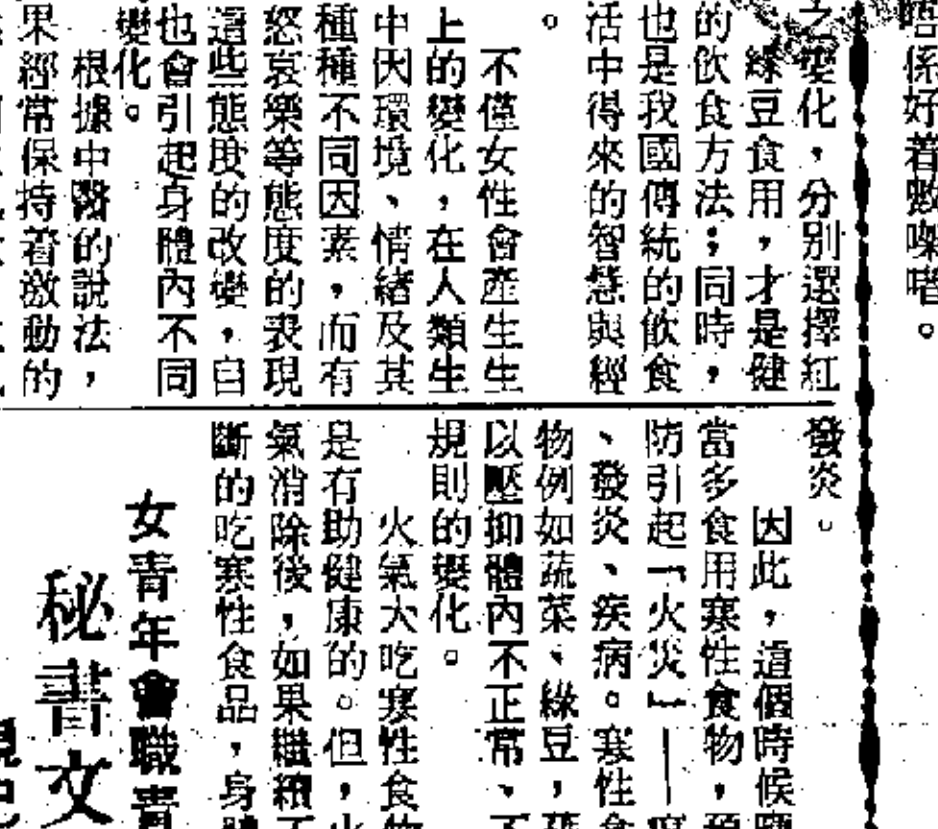 唔係好着數㗎啫。
之變化，分別選擇紅
綠豆食用，才是健
的飲食方法；同時，
也是我國傳統的飲食
活中得來的智慧與經
。
不僅女性會產生生
上的變化，在人類生
中因環境、情緒及其
種種不同因素，而有
怒哀樂等態度的表現
這些態度的改變，自
也會引起身體內不同
變化。
根據中醫的說法，
果經常保持着激動的
發炎。
因此，這個時候
當多食用寒性食物，預
防引起「火災」——
、發炎、疾病。寒性食
物例如蔬菜、綠豆，
以壓抑體內不正常、不
規則的變化。
火氣大吃寒性食物
是有助健康的。但，火
氣消除後，如果繼續不
斷的吃寒性食品，身體
女青年會職青
秘書文